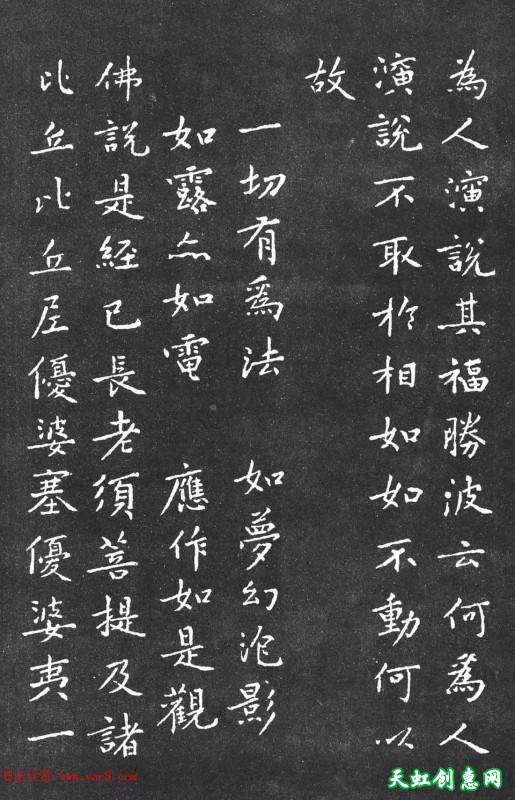 為人演說其福勝波云何為人
演說不取於相如如不動何以
故
一切有為法 如夢幻泡影
如露亦如電 應作如是觀
佛說是經已長老須菩提及諸
比丘比丘尼優婆塞優婆夷一
www.yac8.com
天虹创惠网